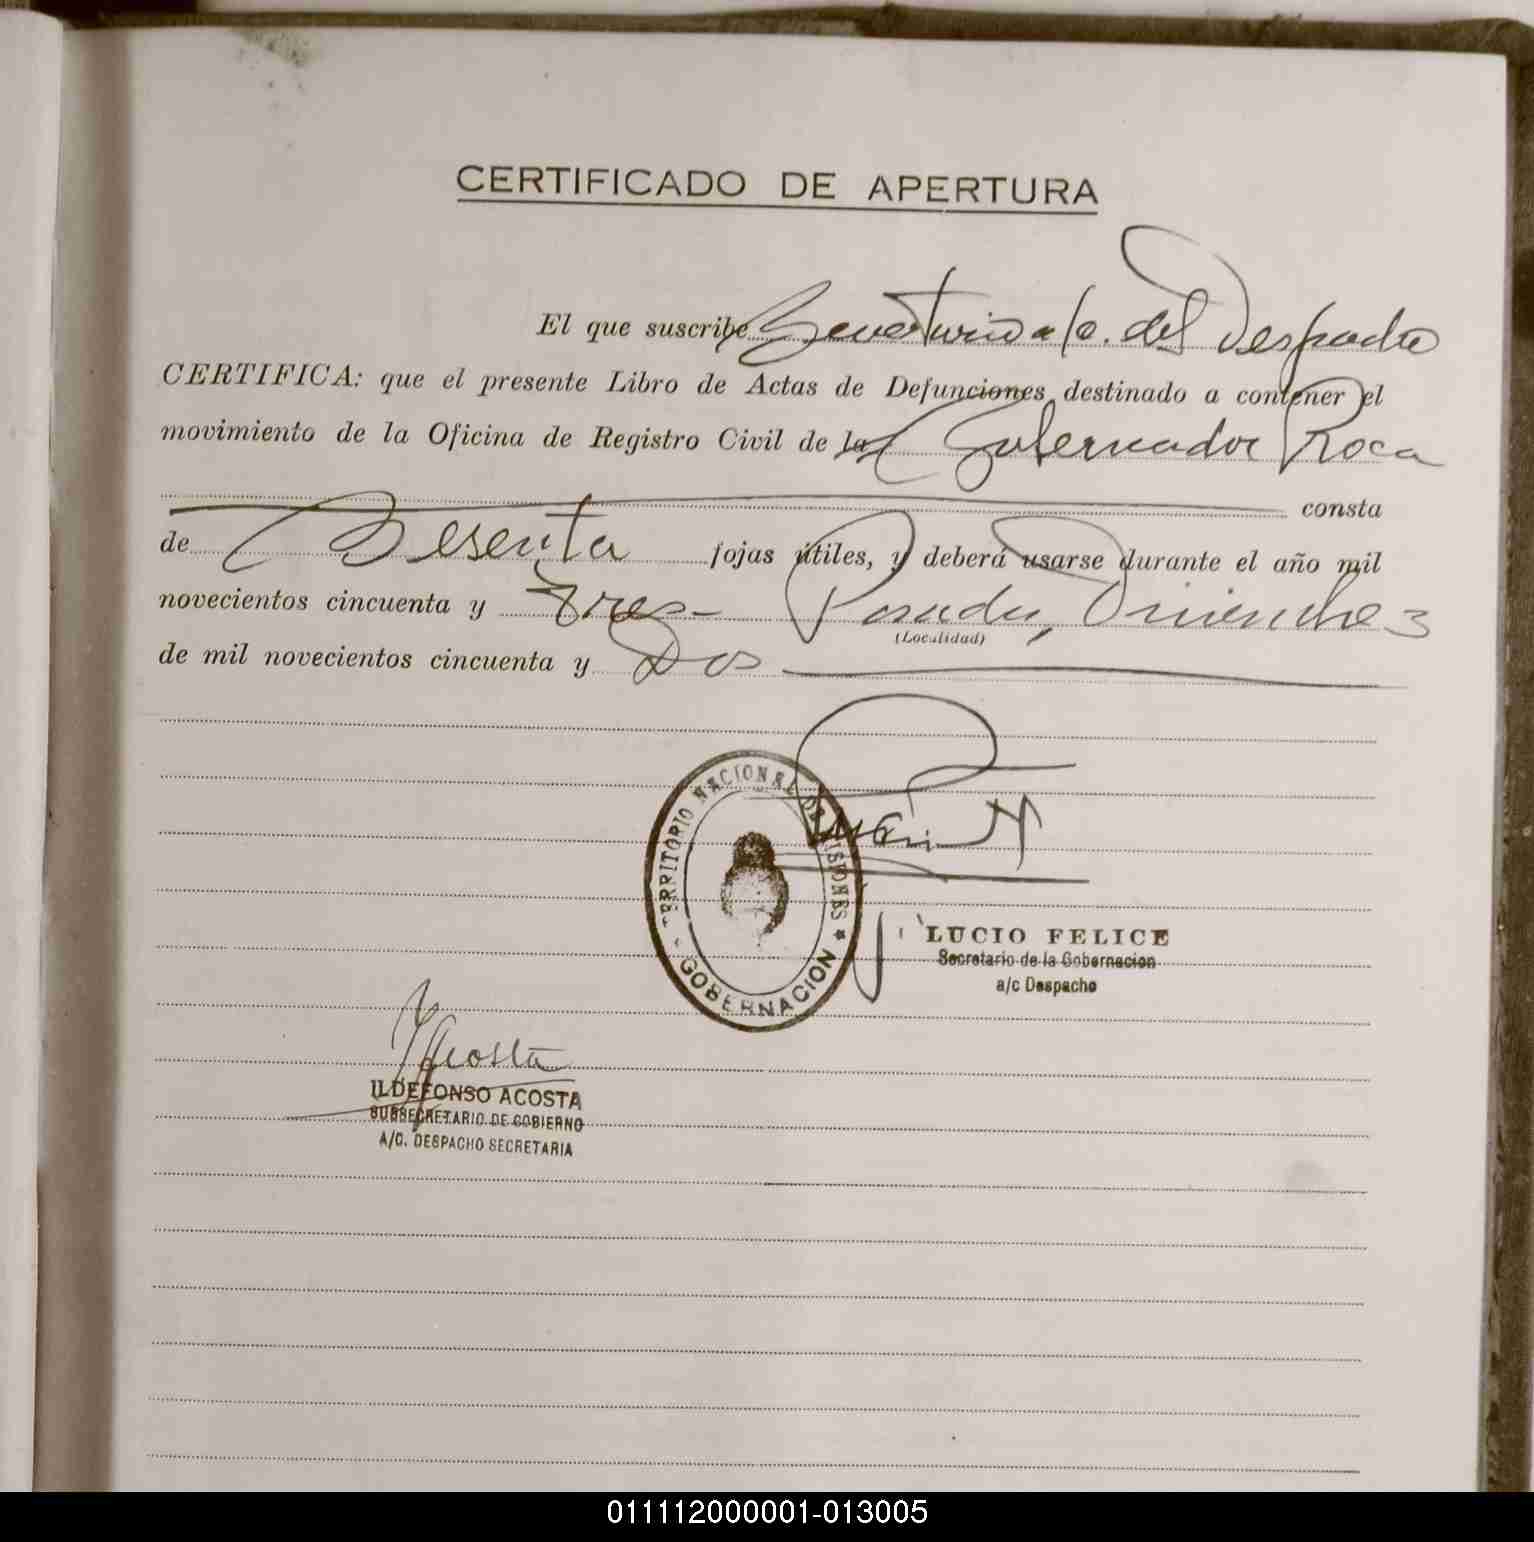 CERTIFICADO DE APERTURA
El que suscribe Secretario a/c. del Despacho
CERTIFICA: que el presente Libro de Actas de Defunciones destinado a contener el
movimiento de la Oficina de Registro Civil de la Gobernador Roca
consta
de Sesenta fojas útiles, y deberá usarse durante el año mil
novecientos cincuenta y Tres- Posadas, Diciembre 3
(Localidad)
de mil novecientos cincuenta y Dos
TERRITORIO NACIONAL DE MISIONES
GOBERNACION
LUCIO FELICE
Secretario de la Gobernacion
a/c Despacho
Acosta
ILDEFONSO ACOSTA
SUBSECRETARIO DE GOBIERNO
A/C. DESPACHO SECRETARIA
011112000001-013005